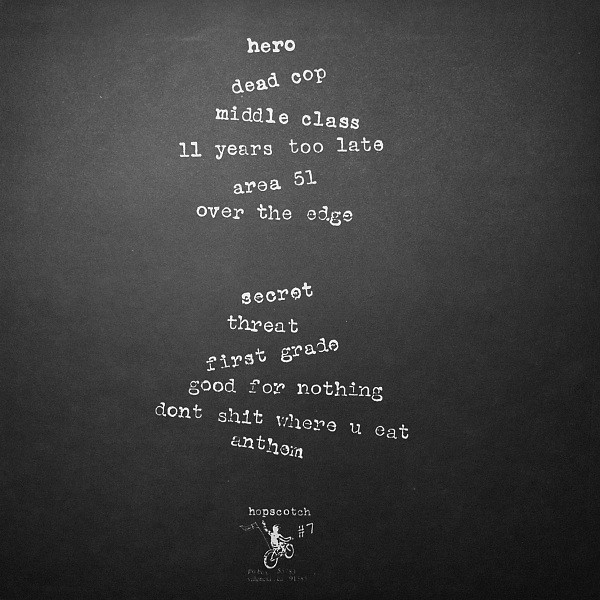 hero
dead cop
middle class
11 years too late
area 51
over the edge
secret
threat
first grade
good for nothing
dont shit where u eat
anthem
hopscotch
#7